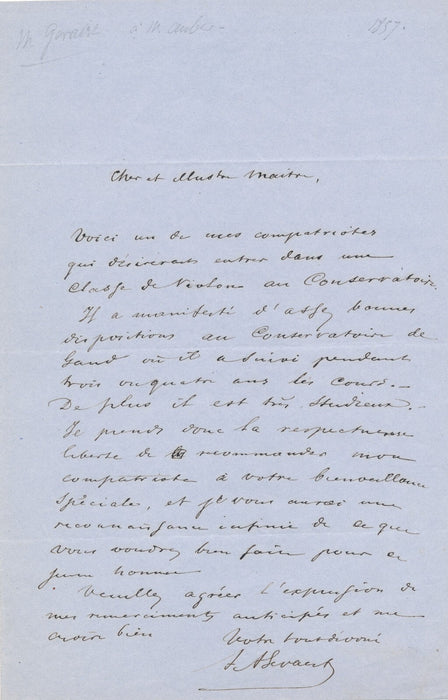 à M. Auber -
1857.
Cher et illustre Maître,
Voici un de mes compatriotes
qui désirerait entrer dans une
Classe de Violon au Conservatoire.
Il a manifesté d'assez bonnes
dispositions au Conservatoire de
Gand où il a suivi pendant
trois ou quatre ans les cours. -
De plus il est très studieux. -
Je prends donc la respectueuse
liberté de recommander mon
compatriote à votre bienveillance
spéciale, et je vous aurai une
reconnaissance infinie de ce que
vous voudrez bien faire pour ce
jeune homme
Veuillez agréer l'expression de
mes remerciments anticipés et me
croire bien
Votre tout dévoué
F A Gevaert